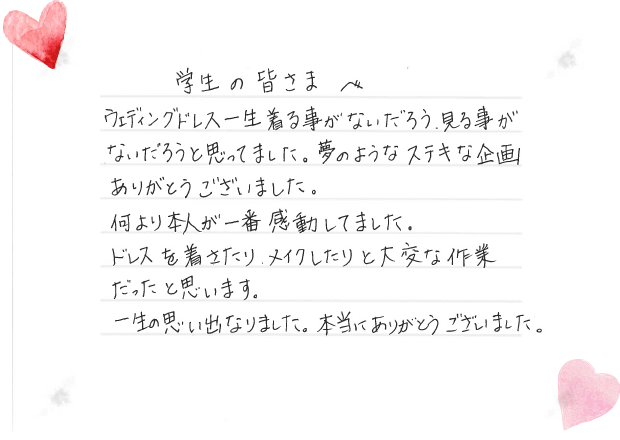 学生の皆さまへ
ウェディングドレス一生着る事がないだろう、見る事が
ないだろうと思ってました。夢のようなステキな企画
ありがとうございました。
何より本人が一番感動してました。
ドレスを着さたり、メイクしたりと大変な作業
だったと思います。
一生の思い出なりました。本当にありがとうございました。